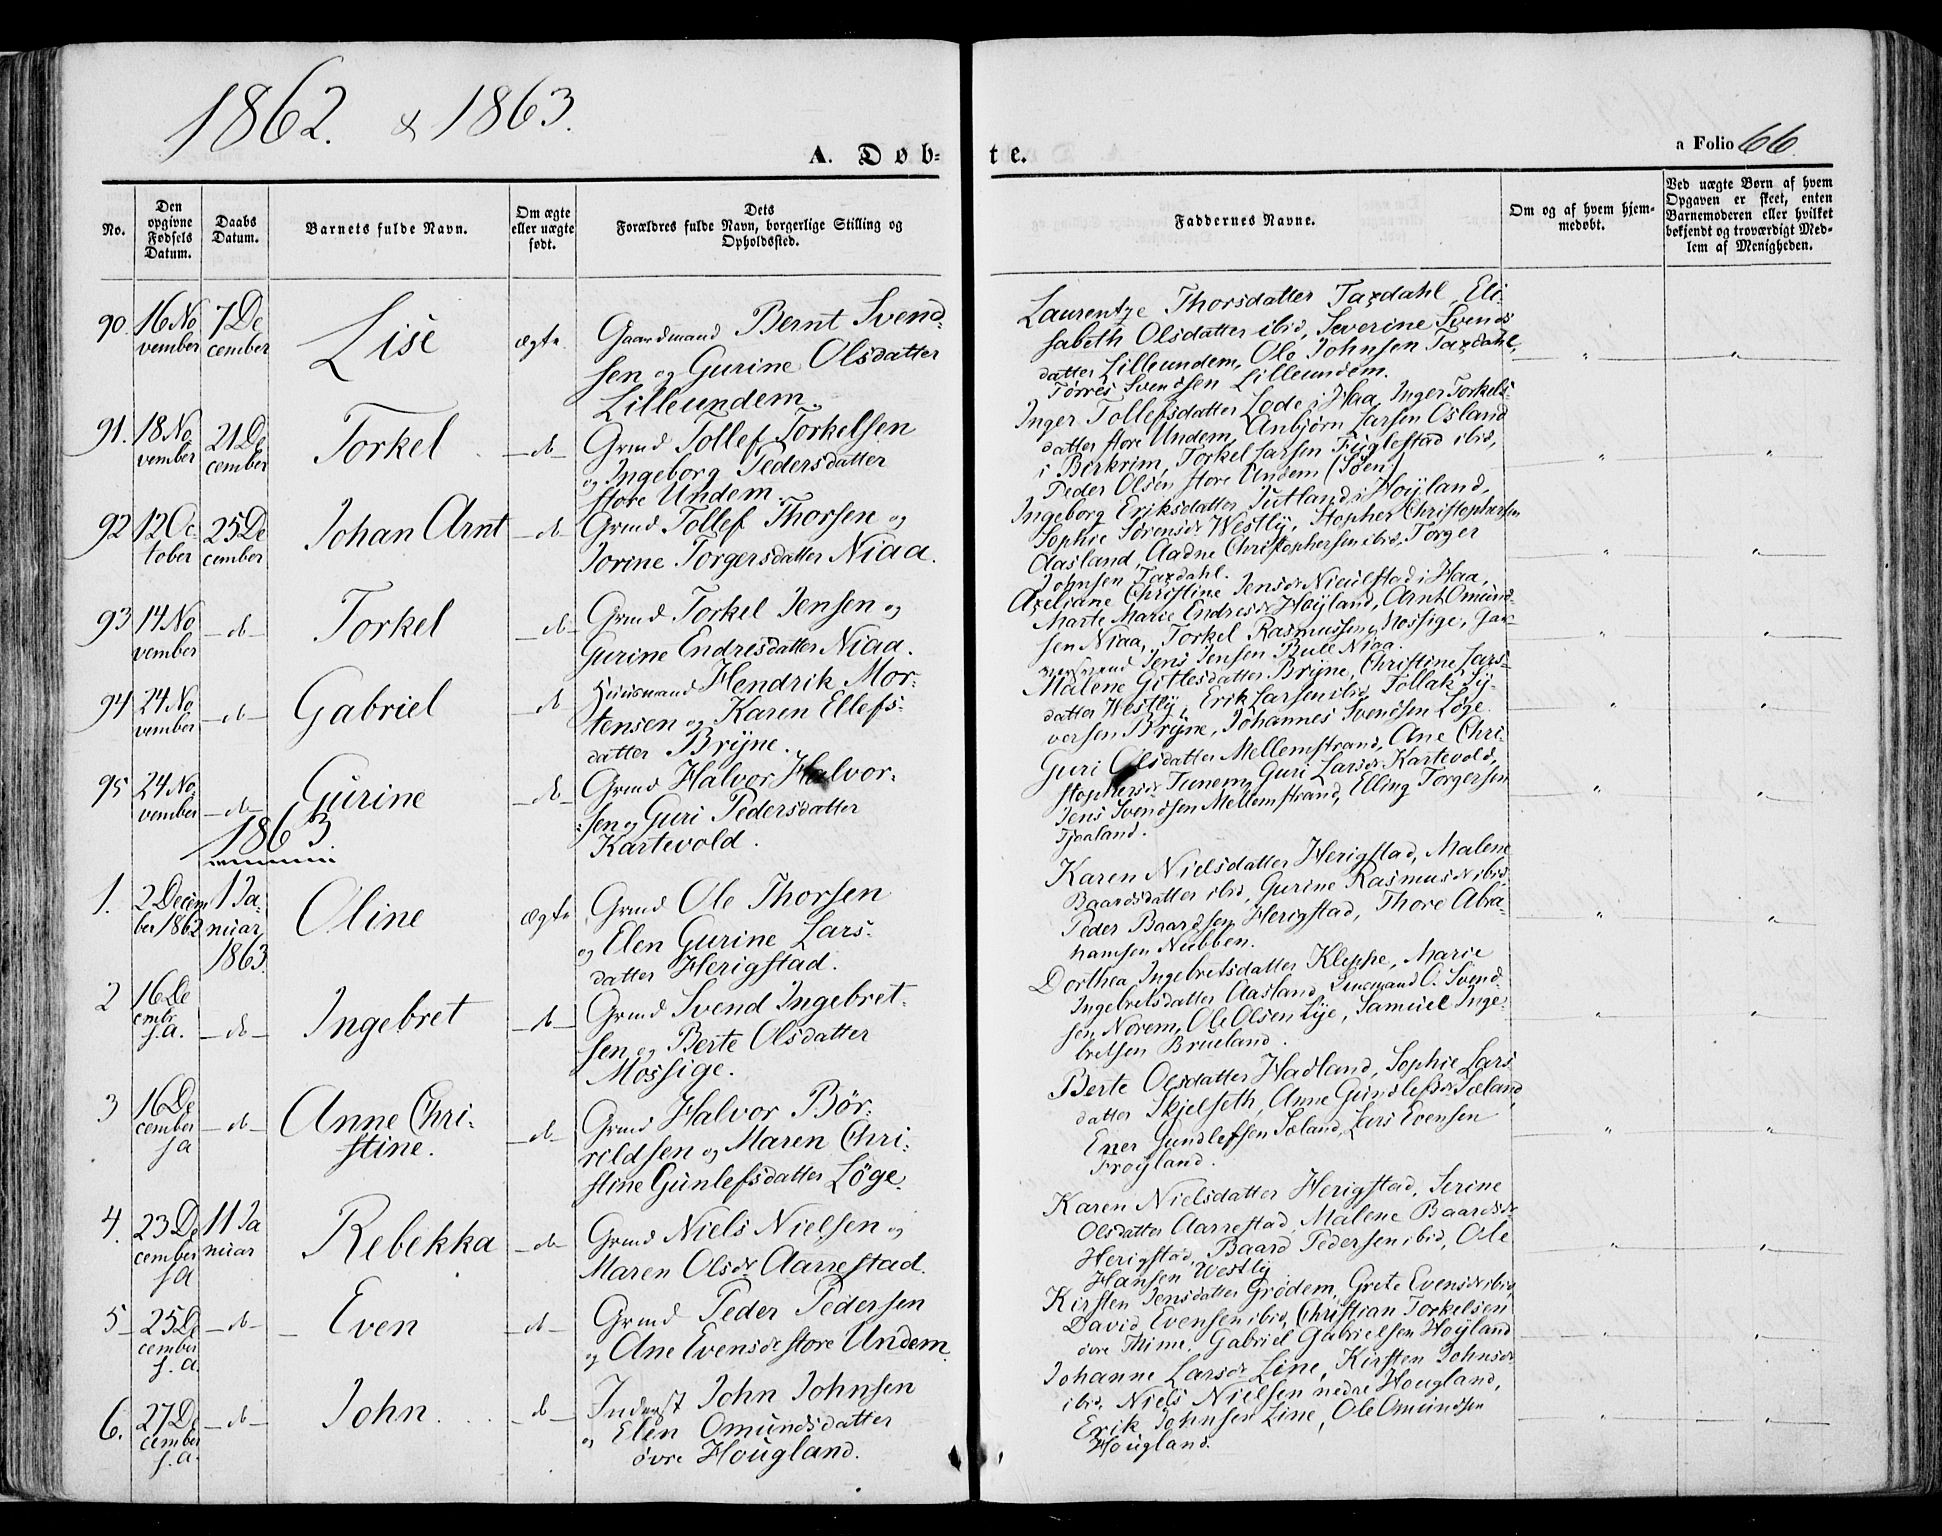 1862. & 1863.
A. Døb-
te.
a Folio 66
No.
Den opgivne Fødsels Datum.
Daabs Datum.
Barnets fulde Navn.
Om ægte eller uægte født.
Dets Forældres fulde Navn, borgerlige Stilling og Opholdssted.
Faddernes Navne.
Om og af hvem hjemmedøbt.
Ved uægte Børn af hvem Opgaven er skeet, enten Barnemoderen eller hvilket bekjendt og troværdigt Medlem af Menigheden.
90. 16 No
vember
7 De
cember
Lise
ægte
Gaardmand Bernt Svend-
sen og Gurine Olsdatter
Lilleundem.
Laurentze Thorsdatter Taxdahl, Eli-
sabeth Olsdatter ibid, Severine Svends
datter Lilleundem, Ole Johnsen Taxdahl,
Tørres Svendsen Lilleundem.
91. 18 No
vember
21 De
cember
Torkel
-do-
Grmd Tollef Torkelsen
og Ingeborg Pedersdatter
store Undem.
Inger Tollefsdatter Lode i Haa, Inger Torkels-
datter store Undem, Anbjørn Larsen Osland
i Birkrim, Torkel Larsen Fuglestad ibid,
Peder Olsen store Undem (Søen)
92 12 Oc
tober
25 De
cember
Johan Arnt
-do-
Grmd Tollef Thorsen og
Jorine Torgersdatter Niaa.
Ingeborg Eriksdatter Jutland i Høyland,
Sophie Sørensdr Westly, Stopher Christophersen
Aasland, Aadne Christophersen ibid, Torger
Johnsen Taxdahl.
93 14 No
vember
-do-
Torkel
-do-
Grmd Torkel Jensen og
Gurine Endresdatter Niaa.
Axeliane Christine Jensdr Niaulstad i Haa,
Marte Marie Endresdr Høyland, Arnt Omund-
sen Niaa, Torkel Rasmussen Mossige, Gar-
Jens Jensen Bull Niaa.
94 24 No
vember
-do-
Gabriel
-do
Huusmand Hendrik Mor-
tensen og Karen Ellefs-
datter Bryne.
Malene Gitlesdatter Bryne, Christine Lars-
datter Westly, Erik Larsen ibid, Tollak Sy-
versen Bryne, Johannes Svendsen Løge.
95 24 No
vember
-do-
Gurine
-do-
Grmd Halvor Halvor-
sen og Guri Pedersdatter
Kartevold.
Guri Olsdatter Mellemstrand, Ane Chri-
stophersdr Tunem, Guri Larsdr Kartevold,
Jens Svendsen Mellemstrand, Elling Torgersen
Tjaaland.
1863
1. 2 Decem
ber 1862
1 Ja-
nuar
1863
Oline
ægte
Grmd Ole Thorsen
og Elen Gurine Lars-
datter Herigstad.
Karen Nielsdatter Herigstad, Malene
Baardsdatter ibid, Gurine Rasmusdr ibid,
Peder Baardsen Herigstad, Thore Abra-
hamsen Nubben.
2 16 De
cembr
s.a.
-do-
Ingebret
-do-
Grmd Svend Ingebret-
sen og Berte Olsdatter
Mossige.
Dorthea Ingebretsdatter Kleppe, Marie
Ingebretsdatter Aasland, Lensmand O. Svend-
sen Norem, Ole Olsen Lye, Samuel Inge-
bretsen Brueland.
3 16 De
cember
s a
-do-
Anne Chri-
stine.
-do-
Grmd Halvor Bør-
rildsen og Maren Chri-
stine Gunlefsdatter Løge.
Berte Olsdatter Hadland, Sophie Lars
datter Skjelseth, Anne Gundlefsdr Sæland,
Ener Gundlefsen Sæland, Lars Evensen
Frøyland.
4. 23 De
cember
s a
11 Ja
nuar
Rebekka
-do-
Grmd Niels Nielsen og
Maren Olsdr Aarrestad.
Karen Nielsdatter Herigstad, Serine
Olsdatter Aarrestad, Malene Baardsdr
Herigstad, Baard Pedersen ibid, Ole
Hansen Westly
5 - 25 De
cember
s. a.
-do-
Even
-do-
Grmd Peder Pedersen
og Ane Evensdr store Undem.
Kirsten Jensdatter Grødem, Grete Evensdr ibid,
David Evensen ibid, Christian Torkelsen
øvre Thime, Gabriel Gabrielsen Høyland
6. 27 De
cember
s.a.
-do-
John.
-do-
Inderst John Johnsen
og Elen Omundsdatter
øvre Hougland.
Johanne Larsdr Line, Kirsten Johnsdr
ibid, Niels Nielsen nedre Hougland,
Erik Johnsen Line, Ole Omundsen
Hougland.